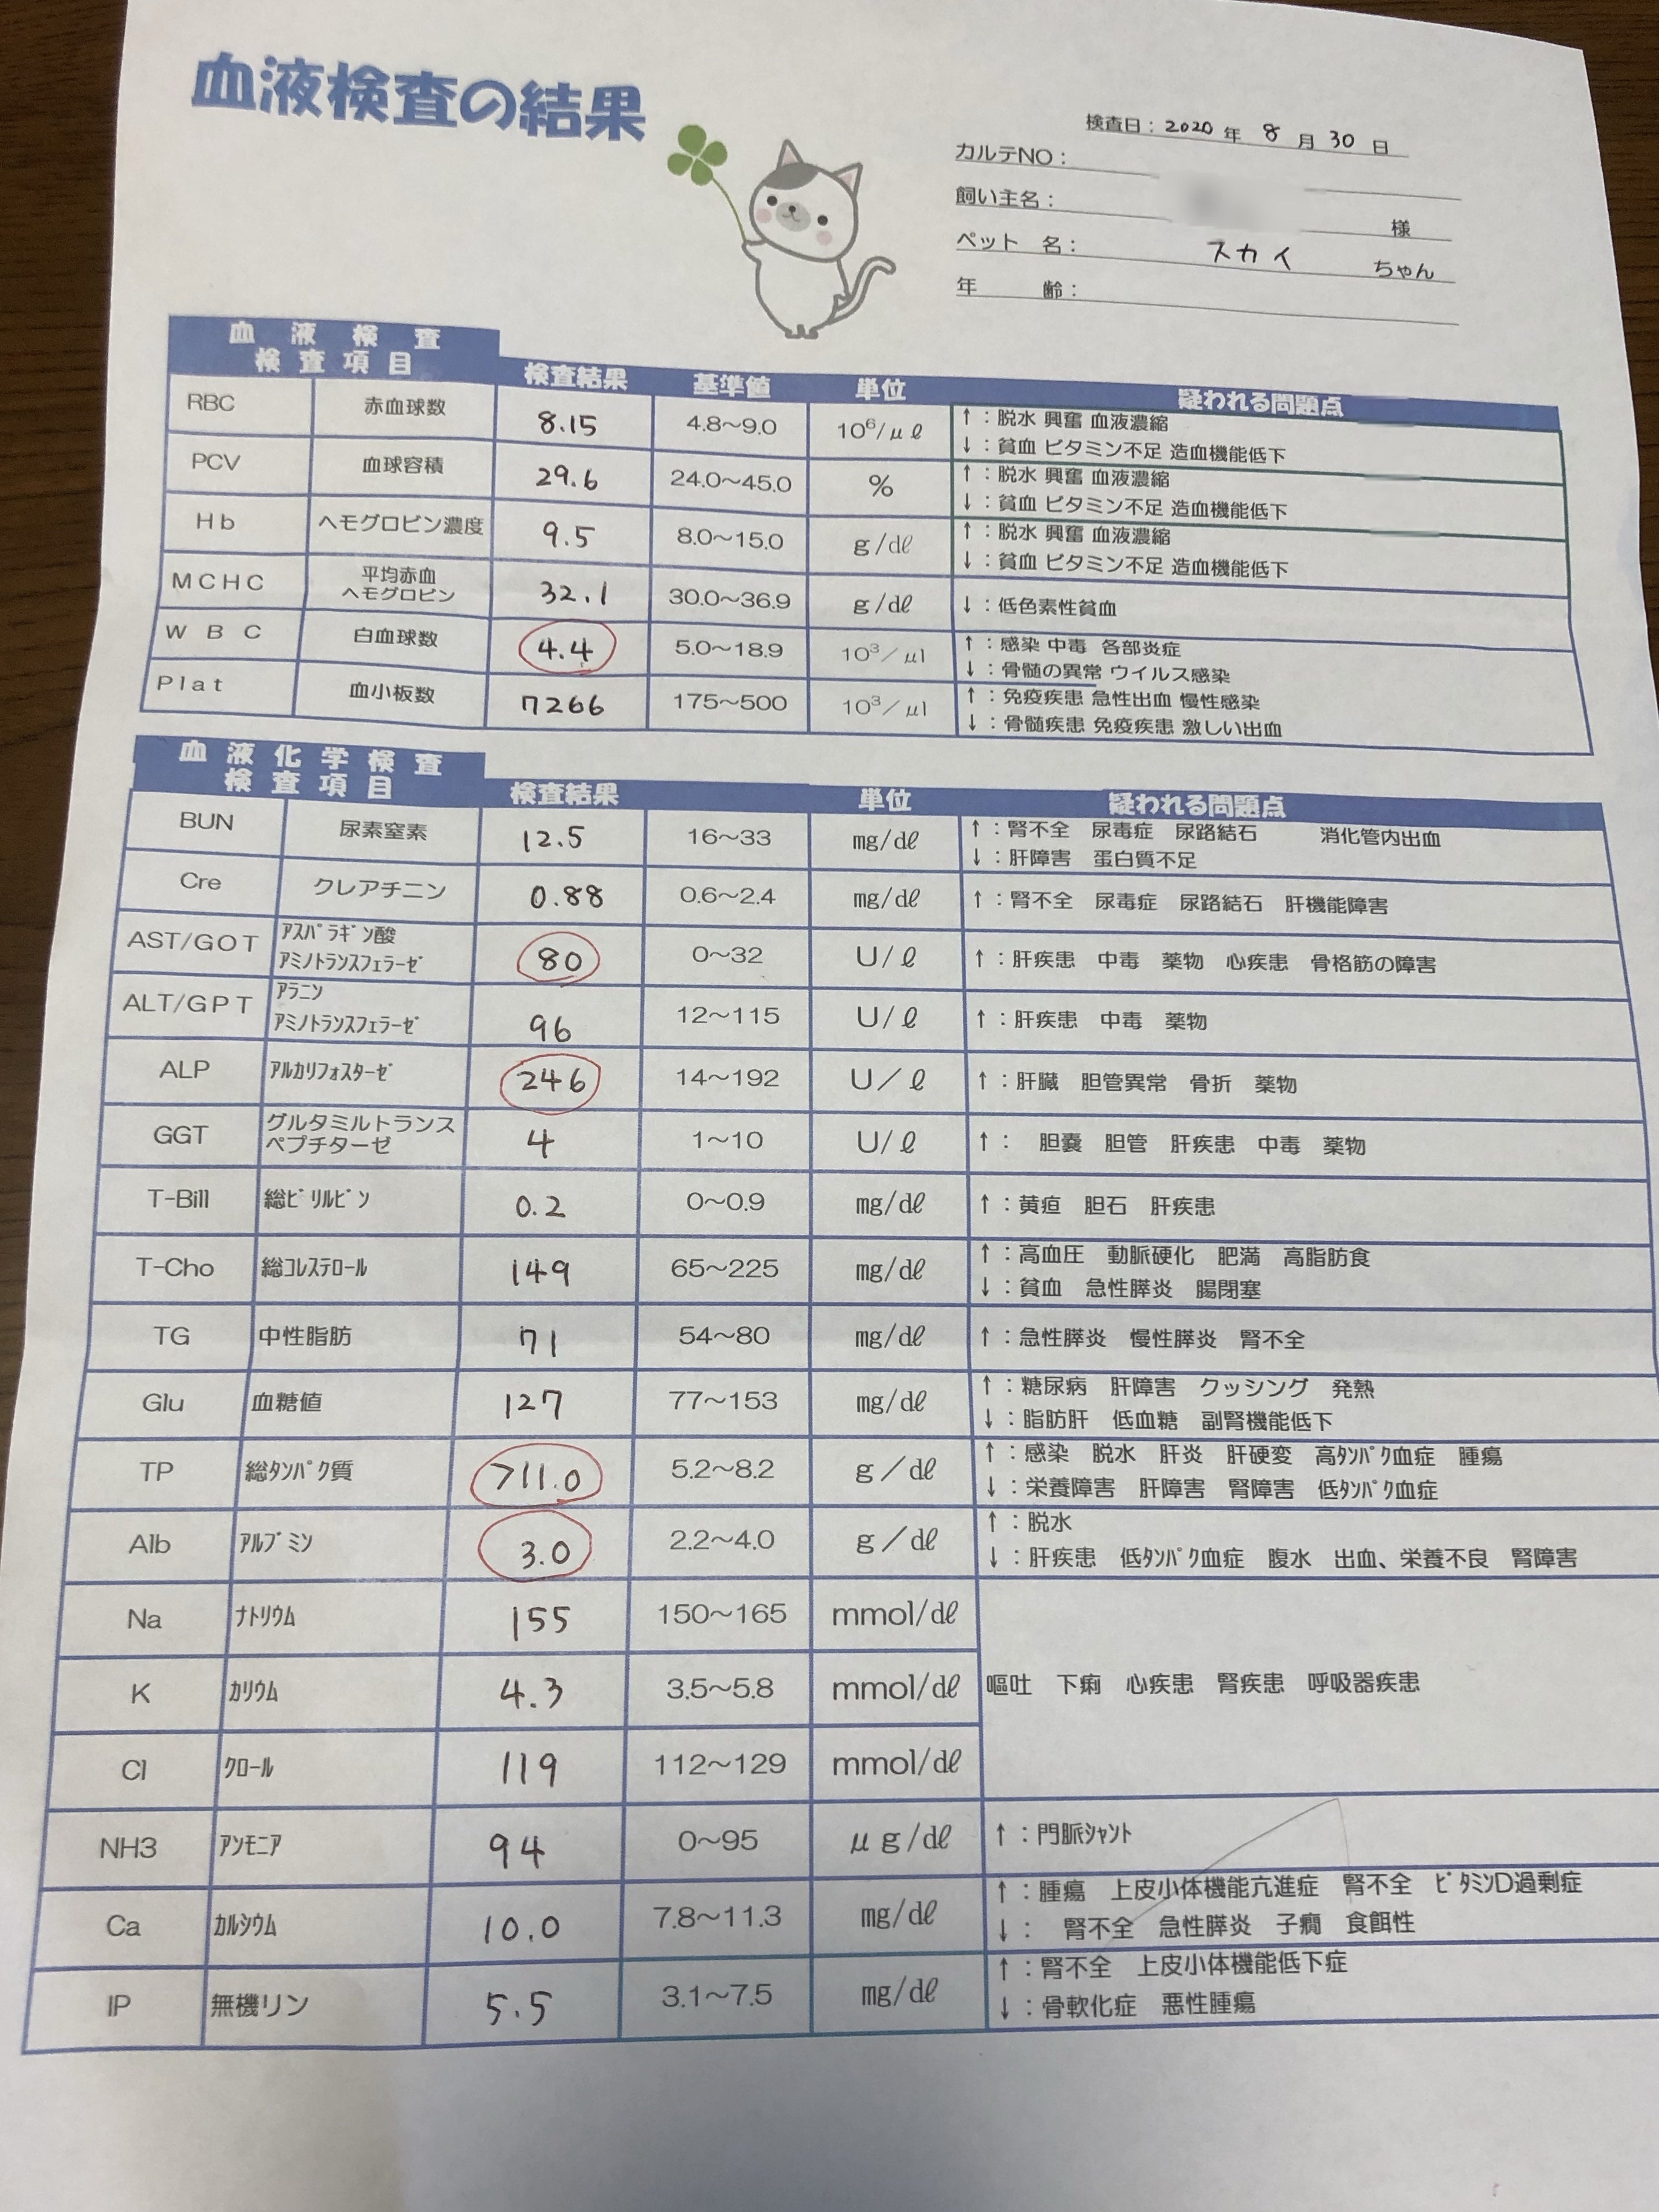 血液検査の結果
検査日：2020年 8月30日
カルテNO：
飼い主名： 様
ペット 名： スカイ ちゃん
年 齢：
血 液 検 査
検 査 項 目 検査結果 基準値 単位 疑われる問題点
RBC 赤血球数 8.15 4.8～9.0 10⁶/μℓ ↑：脱水 興奮 血液濃縮
↓：貧血 ビタミン不足 造血機能低下
PCV 血球容積 29.6 24.0～45.0 % ↑：脱水 興奮 血液濃縮
↓：貧血 ビタミン不足 造血機能低下
Hb ヘモグロビン濃度 9.5 8.0～15.0 g/dℓ ↑：脱水 興奮 血液濃縮
↓：貧血 ビタミン不足 造血機能低下
MCHC 平均赤血
ヘモグロビン 32.1 30.0～36.9 g/dℓ ↓：低色素性貧血
WBC 白血球数 4.4 5.0～18.9 10³/μl ↑：感染 中毒 各部炎症
↓：骨髄の異常 ウイルス感染
Plat 血小板数 7266 175～500 10³/μl ↑：免疫疾患 急性出血 慢性感染
↓：骨髄疾患 免疫疾患 激しい出血
血 液 化 学 検 査
検 査 項 目 検査結果 単位 疑われる問題点
BUN 尿素窒素 12.5 16～33 mg/dℓ ↑：腎不全 尿毒症 尿路結石 消化管内出血
↓：肝障害 蛋白質不足
Cre クレアチニン 0.88 0.6～2.4 mg/dℓ ↑：腎不全 尿毒症 尿路結石 肝機能障害
AST/GOT ｱｽﾊﾟﾗｷﾞﾝ酸
ｱﾐﾉﾄﾗﾝｽﾌｪﾗｰｾﾞ 80 0～32 U/ℓ ↑：肝疾患 中毒 薬物 心疾患 骨格筋の障害
ALT/GPT ｱﾗﾆﾝ
ｱﾐﾉﾄﾗﾝｽﾌｪﾗｰｾﾞ 96 12～115 U/ℓ ↑：肝疾患 中毒 薬物
ALP ｱﾙｶﾘﾌｫｽﾀｰｾﾞ 246 14～192 U/ℓ ↑：肝臓 胆管異常 骨折 薬物
GGT グルタミルトランス
ペプチターゼ 4 1～10 U/ℓ ↑： 胆嚢 胆管 肝疾患 中毒 薬物
T-Bill 総ﾋﾞﾘﾙﾋﾞﾝ 0.2 0～0.9 mg/dℓ ↑：黄疸 胆石 肝疾患
T-Cho 総ｺﾚｽﾃﾛｰﾙ 149 65～225 mg/dℓ ↑：高血圧 動脈硬化 肥満 高脂肪食
↓：貧血 急性膵炎 腸閉塞
TG 中性脂肪 71 54～80 mg/dℓ ↑：急性膵炎 慢性膵炎 腎不全
Glu 血糖値 127 77～153 mg/dℓ ↑：糖尿病 肝障害 クッシング 発熱
↓：脂肪肝 低血糖 副腎機能低下
TP 総ﾀﾝﾊﾟｸ質 >11.0 5.2～8.2 g/dℓ ↑：感染 脱水 肝炎 肝硬変 高ﾀﾝﾊﾟｸ血症 腫瘍
↓：栄養障害 肝障害 腎障害 低ﾀﾝﾊﾟｸ血症
Alb ｱﾙﾌﾞﾐﾝ 3.0 2.2～4.0 g/dℓ ↑：脱水
↓：肝疾患 低ﾀﾝﾊﾟｸ血症 腹水 出血、栄養不良 腎障害
Na ﾅﾄﾘｳﾑ 155 150～165 mmol/dℓ
K ｶﾘｳﾑ 4.3 3.5～5.8 mmol/dℓ 嘔吐 下痢 心疾患 腎疾患 呼吸器疾患
Cl ｸﾛｰﾙ 119 112～129 mmol/dℓ
NH3 ｱﾝﾓﾆｱ 94 0～95 μg/dℓ ↑：門脈ｼｬﾝﾄ
Ca ｶﾙｼｳﾑ 10.0 7.8～11.3 mg/dℓ ↑：腫瘍 上皮小体機能亢進症 腎不全 ﾋﾞﾀﾐﾝD過剰症
↓： 腎不全 急性膵炎 子癇 食餌性
IP 無機リン 5.5 3.1～7.5 mg/dℓ ↑：腎不全 上皮小体機能低下症
↓：骨軟化症 悪性腫瘍